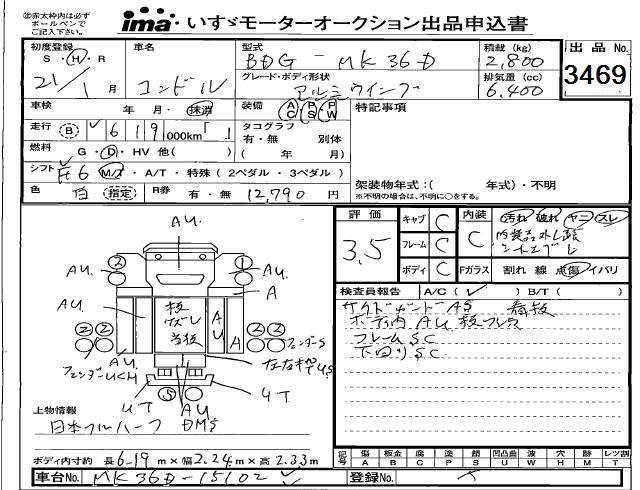 ㊟赤太枠内は必ず
ボールペンで
ご記入下さい。
ima いすゞモーターオークション出品申込書
初度登録 車名 型式 積載 (kg) 出品 No.
S・H・R コンドル BDG-MK36D 2,800
21/1 月 グレード・ボディ形状 排気量 (cc) 3469
アルミウイング 6,400
車検 年・月・抹消 装備 AC PS PW 特記事項
走行 B 619,000km「 」 タコグラフ
有・無 別体
燃料 G・D・HV 他( ) ( 年 月)
シフト F6 M/T・A/T・特殊 (2ペダル・3ペダル)
架装物年式:( 年式)・不明
色 白 指定 R券 有・無 12,790 円
※不明の場合は、不明に○をする。
評価 キャブ C 内装 汚れ 破れ ヤニ スレ
3.5 フレーム C C
ボディ C Fガラス 割れ 線 点傷 イバリ
検査員報告 A/C( ✓ ) B/T( )
サイドガード AS 看板
ボディ内 AU 板
フレーム SC
下回り SC
AU.
② ①
AU. AU.
A
AU 板 ズレ 当板 AU A
②② ②②
フェンダーS
AU.
フェンダーUCM
UT UT
⑤
AU
上物情報
日本フルハーフ DMS
ボディ内寸約 長 6.19 m×幅 2.24 m×高 2.33 m
記号 傷A 板金B 腐C 塗P 錆S 凹凸曲U 波W 穴H 跡M レツ割T
車台No. MK36D-15102 登録No.